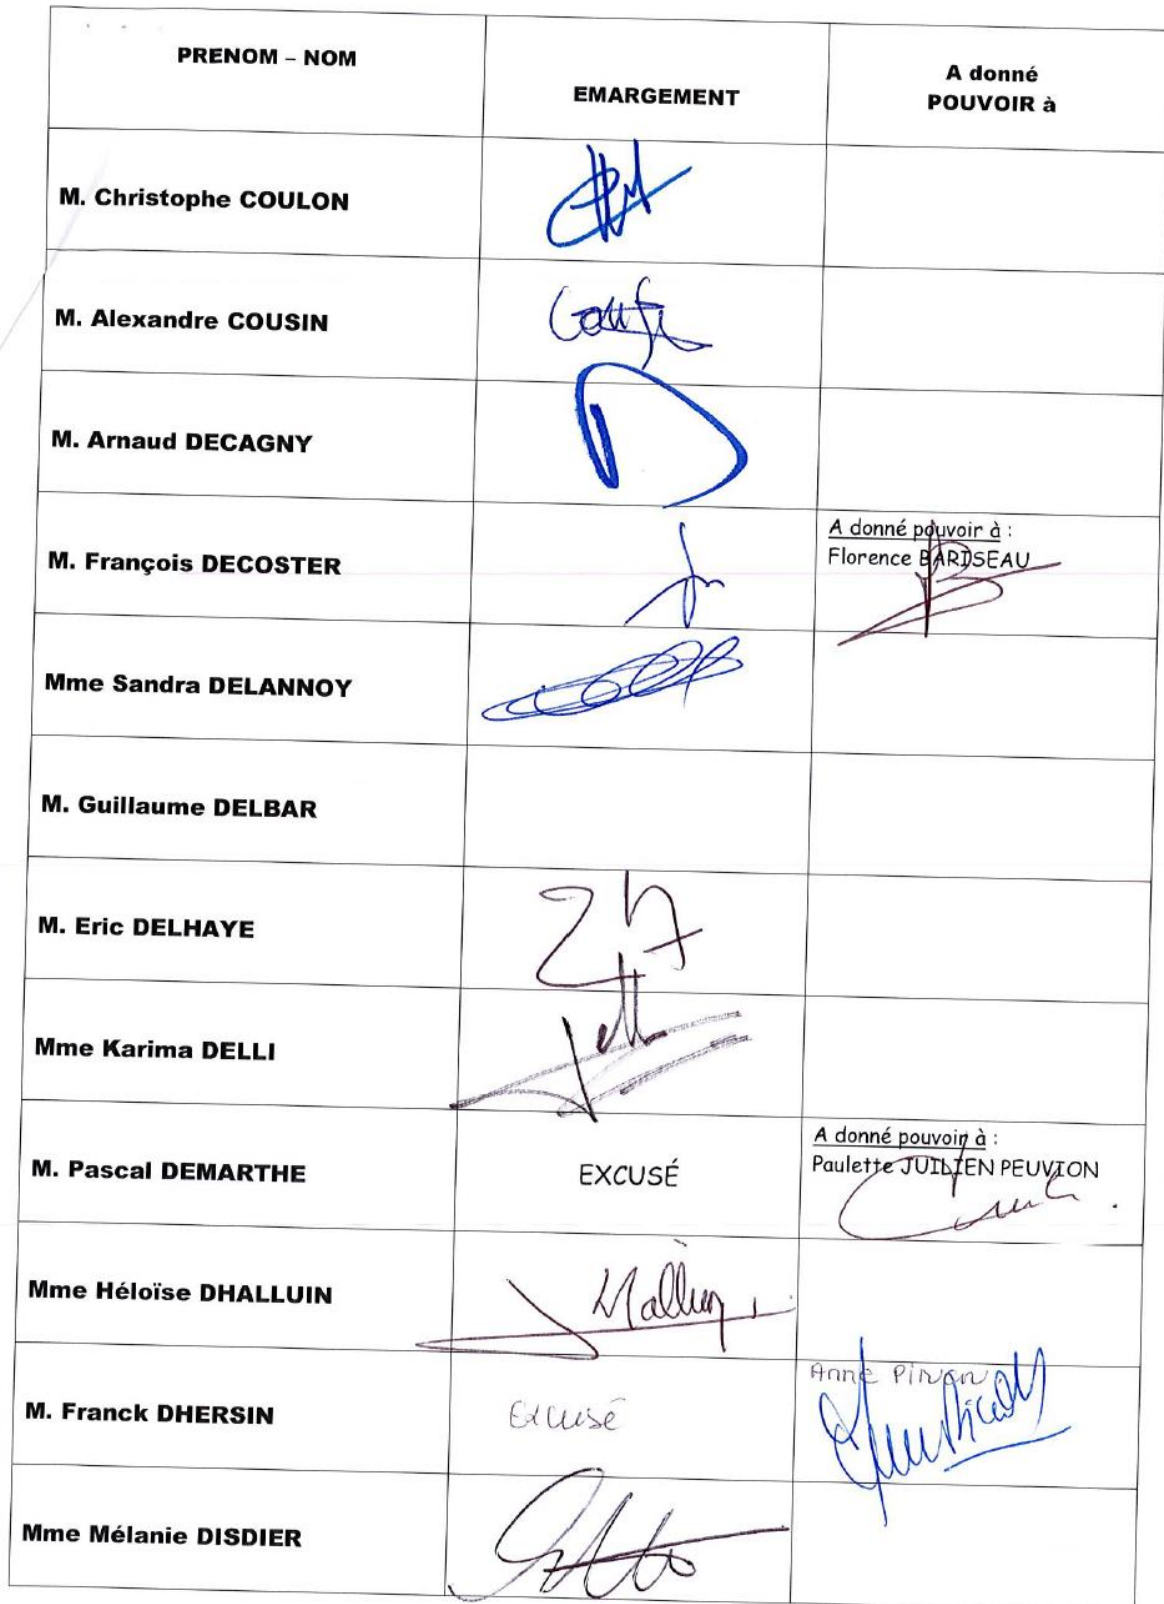 PRENOM – NOM
EMARGEMENT
A donné
POUVOIR à
M. Christophe COULON
M. Alexandre COUSIN
M. Arnaud DECAGNY
M. François DECOSTER
A donné pouvoir à :
Florence BARISEAU
Mme Sandra DELANNOY
M. Guillaume DELBAR
M. Eric DELHAYE
Mme Karima DELLI
M. Pascal DEMARTHE
EXCUSÉ
A donné pouvoir à :
Paulette JUILIEN PEUVION
Mme Héloïse DHALLUIN
M. Franck DHERSIN
Excusé
Anne
Mme Mélanie DISDIER